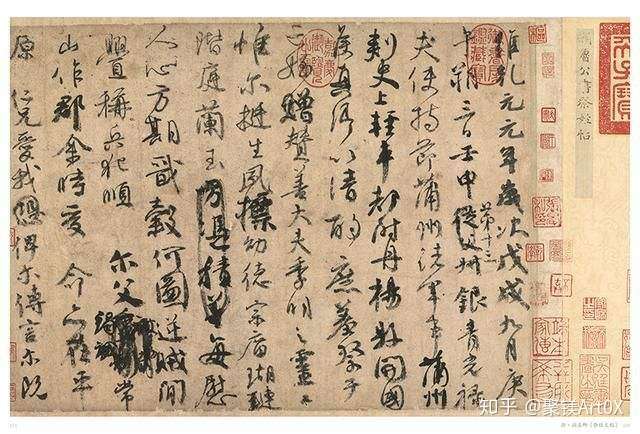 顏魯公書祭姪帖
維乾元元年歲次戊戌九月庚
午朔三日壬申第十三叔銀青光祿
夫使持節蒲州諸軍事蒲州
刺史上輕車都尉丹楊縣開國
侯真卿以清酌庶羞祭于
亡姪贈贊善大夫季明之靈
惟爾挺生夙標幼德宗廟瑚璉
階庭蘭玉方憑積善每慰
人心方期戩穀何圖逆賊間
釁稱兵犯順爾父竭誠常
山作郡余時受命亦在平
原仁兄愛我俾爾傳言爾既
知乎 @聚镁Art0X